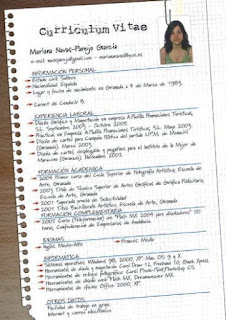 Curriculum Vitae
Mariana Navas-Parejo García
INFORMACION PERSONAL
Estado civil: Soltera
Nacionalidad: Española
Lugar y fecha de nacimiento: Granada a 9 de Marzo de 1983.
Carnet de Conducir B.
EXPERIENCIA LABORAL
Diseño Gráfico y Maquetación en empresa
Turísticas, S.L. Septiembre 2003 - Octubre 2005.
Prácticas en Empresa
Turísticas, S.L. Mayo 2003.
Diseño de cartel para Campus
Granada, Marzo 2003.
Diseño de cartel, desplegable y pegatinas para el Instituto de la Mujer de
Granada. Noviembre 2002.
FORMACION ACADÉMICA
2004 Primer curso del Ciclo Superior de Fotografía Artística, Escuela de
Arte, Granada
2003 Título de Técnico Superior de Artes Gráficas de Gráfica Publicitaria,
Escuela de Arte, Granada.
2001 Superada prueba de Selectividad
2001 Título Bachillerato Artístico, Escuela de Arte, Granada.
FORMACION COMPLEMENTARIA
2005 Curso (Teleformación) de "Flash MX 2004 para diseñadores" 50
horas, Confederación de Empresarios de Andalucía.
IDIOMAS
Inglés: Medio-Alto Francés: Medio
INFORMATICA
Sistemas operativos: Windows 98, 2000, XP. Mac OS 9 y X
Herramienta de diseño y maquetación: Corel Draw 12, Freehand 10, Quark Xpress.
Herramienta de retoque fotográfico: Corel Photo-Paint, Photoshop CS.
Herramienta de diseño web: Flash MX, Dreamweaver MX.
Herramienta de oficina: Office 2000, XP.
OTROS DATOS
Facilidad de trabajo en grupo.
Internet y correo electrónico.